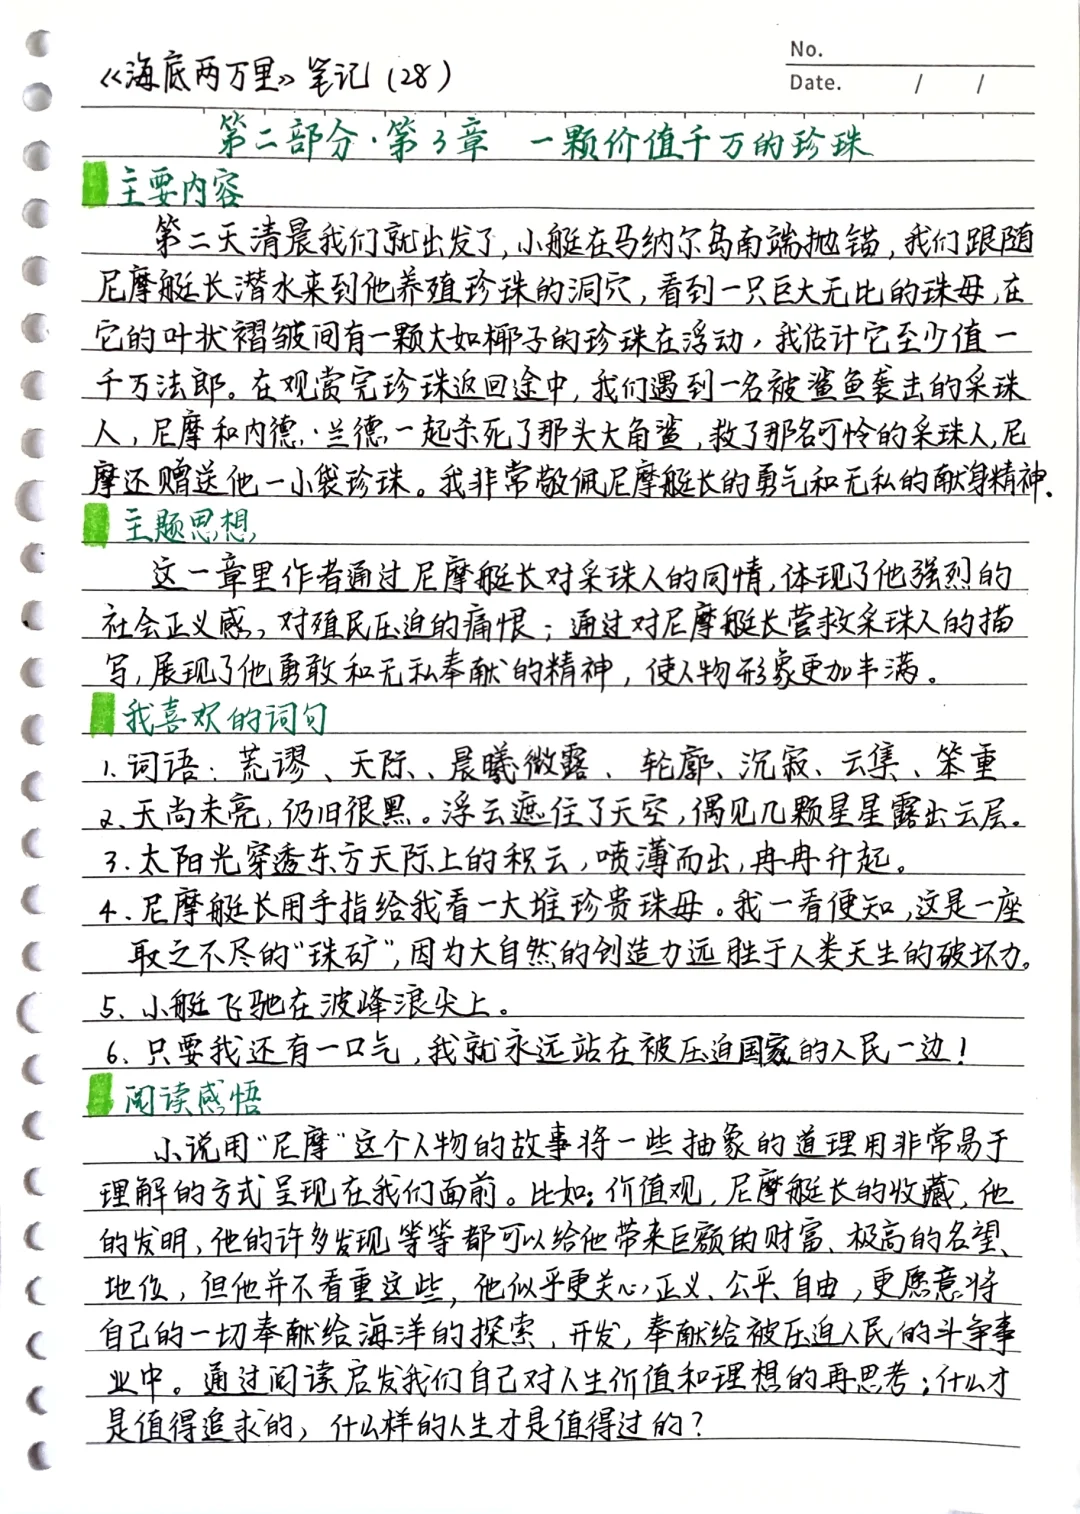 《海底两万里》笔记(28)
No.
Date. / /
第二部分·第3章 一颗价值千万的珍珠
主要内容
第二天清晨我们就出发了,小艇在马纳尔岛南端抛锚,我们跟随
尼摩艇长潜水来到他养殖珍珠的洞穴,看到一只巨大无比的珠母,在
它的叶状褶皱间有一颗大如椰子的珍珠在浮动,我估计它至少值一
千万法郎。在观赏完珍珠返回途中,我们遇到一名被鲨鱼袭击的采珠
人,尼摩和内德·兰德一起杀死了那头大角鲨,救了那名可怜的采珠人,尼
摩还赠送他一小袋珍珠。我非常敬佩尼摩艇长的勇气和无私的献身精神.
主题思想
这一章里作者通过尼摩艇长对采珠人的同情,体现了他强烈的
社会正义感,对殖民压迫的痛恨;通过对尼摩艇长营救采珠人的描
写,展现了他勇敢和无私奉献的精神,使人物形象更加丰满。
我喜欢的词句
1.词语:荒谬、天际、晨曦微露、轮廓、沉寂、云集、笨重
2、天尚未亮,仍旧很黑。浮云遮住了天空,偶见几颗星星露出云层。
3.太阳光穿透东方天际上的积云,喷薄而出,冉冉升起。
4.尼摩艇长用手指给我看一大堆珍贵珠母。我一看便知,这是一座
取之不尽的“珠矿”,因为大自然的创造力远胜于人类天生的破坏力。
5、小艇飞驰在波峰浪尖上。
6、只要我还有一口气,我就永远站在被压迫国家的人民一边!
阅读感悟
小说用“尼摩”这个人物的故事将一些抽象的道理用非常易于
理解的方式呈现在我们面前。比如:价值观,尼摩艇长的收藏,他
的发明,他的许多发现等等都可以给他带来巨额的财富、极高的名望、
地位,但他并不看重这些,他似乎更关心正义、公平、自由,更愿意将
自己的一切奉献给海洋的探索、开发,奉献给被压迫人民的斗争事
业中。通过阅读启发我们自己对人生价值和理想的再思考;什么才
是值得追求的,什么样的人生才是值得过的?